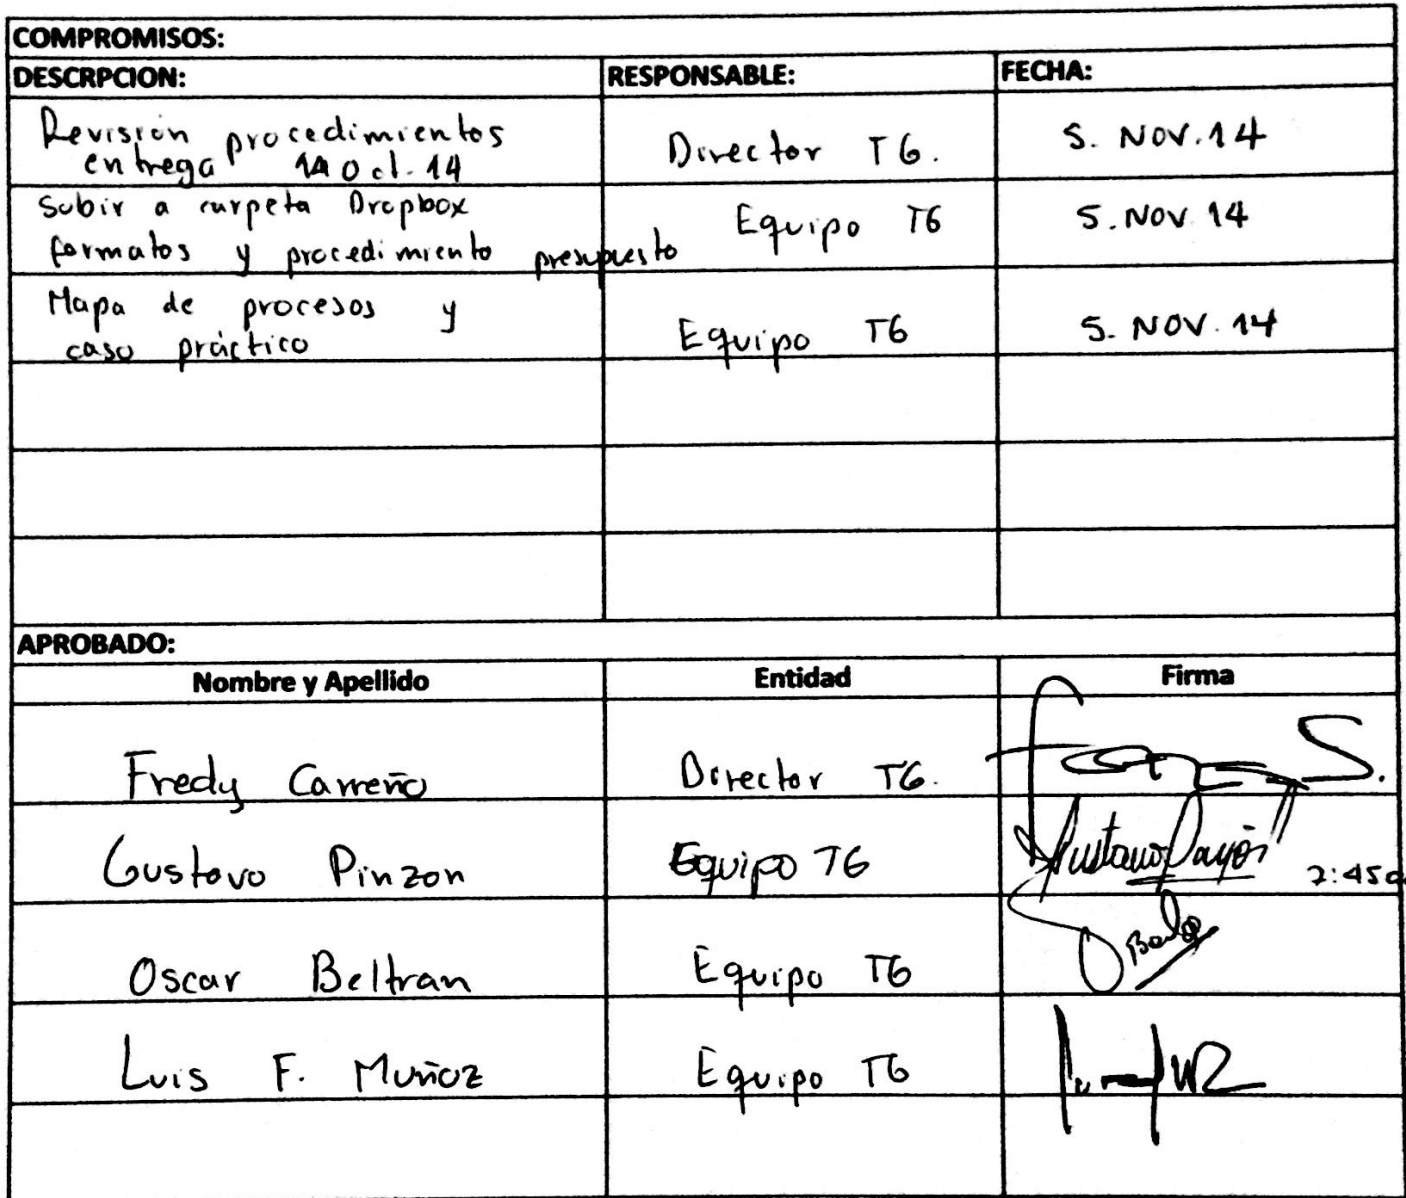 COMPROMISOS:
DESCRPCION: RESPONSABLE: FECHA:
Revisión procedimientos
entrega 1A Oct. 14 Director TG. 5. NOV. 14
Subir a carpeta Dropbox
formatos y procedimiento presupuesto Equipo TG 5. NOV 14
Mapa de procesos y
caso práctico Equipo TG 5. NOV. 14
APROBADO:
Nombre y Apellido Entidad Firma
Fredy Carreño Director TG.
Gustavo Pinzon Equipo TG Gustavo 2:45
Oscar Beltran Equipo TG
Luis F. Muñoz Equipo TG